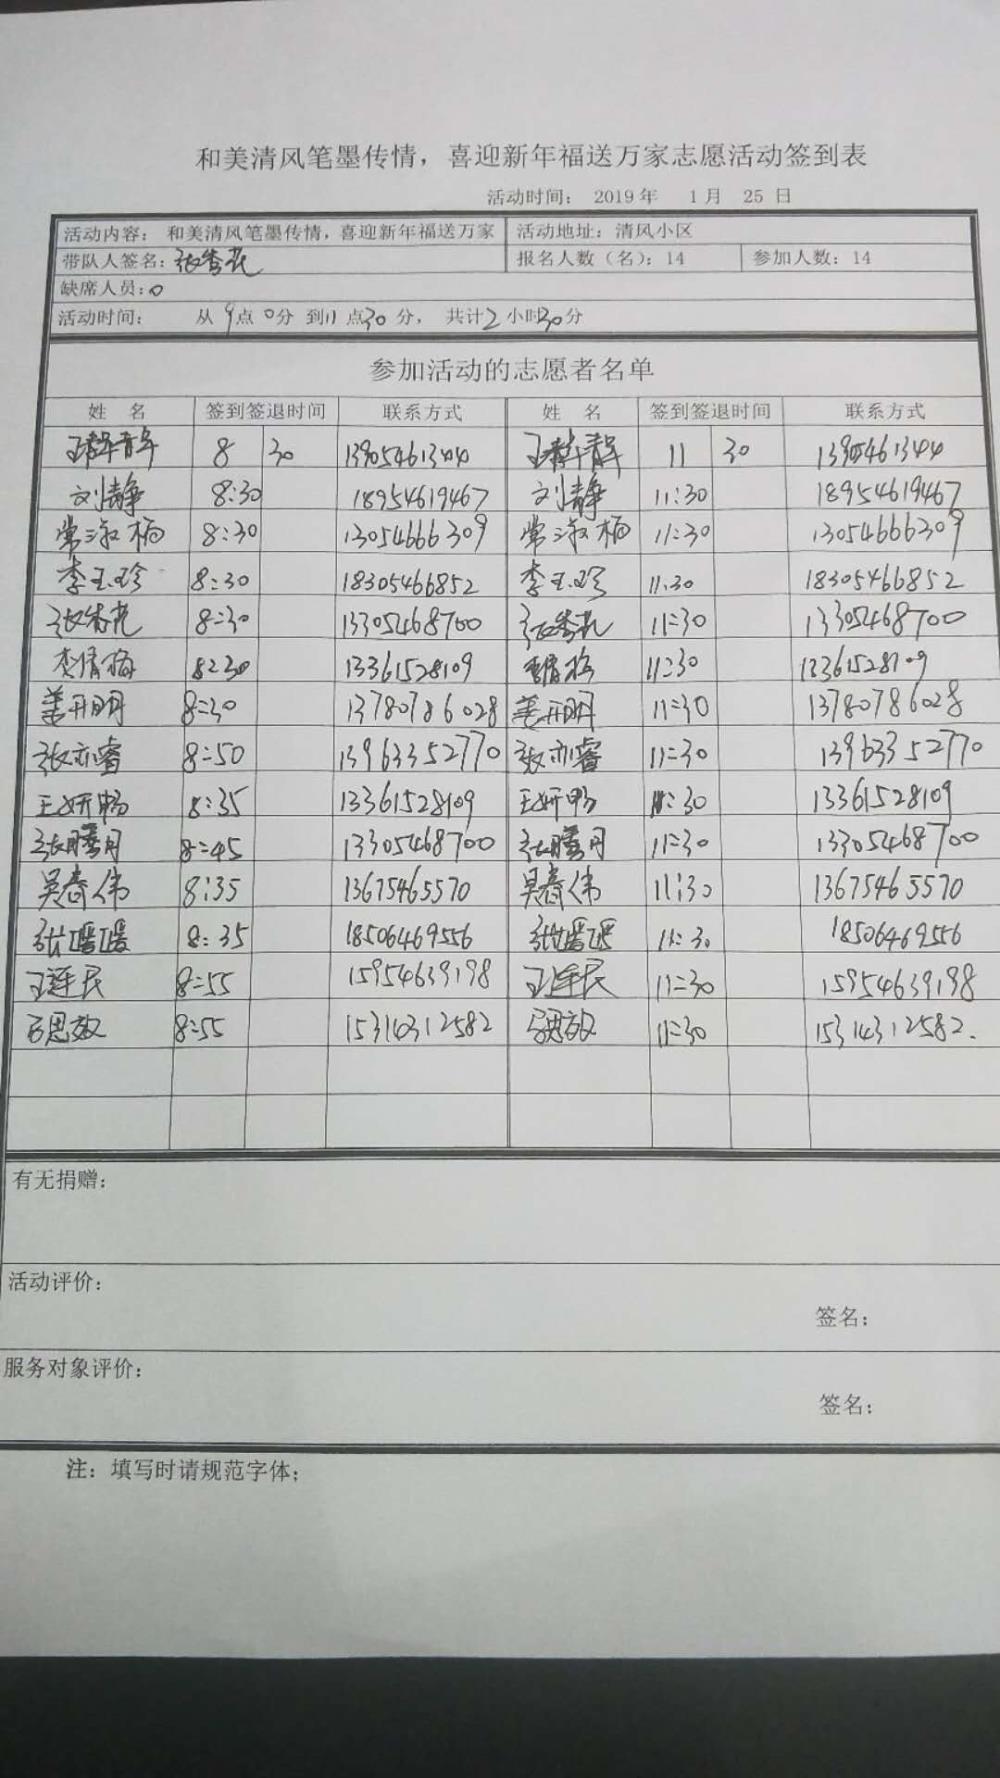 和美清风笔墨传情，喜迎新年福送万家志愿活动签到表
活动时间： 2019年 1月 25日
活动内容： 和美清风笔墨传情，喜迎新年福送万家 活动地址：清风小区
带队人签名：张秀花 报名人数（名）：14 参加人数：14
缺席人员：0
活动时间： 从9点0分到11点30分， 共计2小时30分
参加活动的志愿者名单
姓 名 签到签退时间 联系方式 姓 名 签到签退时间 联系方式
8 30 13905461344 11 30 13905461344
刘静 8:30 18954619467 刘静 11:30 18954619467
常淑梅 8:30 13054666309 常淑梅 11:30 13054666309
李玉珍 8:30 18305466852 李玉珍 11:30 18305466852
张秀花 8:30 13305468700 张秀花 11:30 13305468700
李倩梅 8:30 13361528109 李倩梅 11:30 13361528109
姜开明 8:30 13780786028 姜开明 11:30 13780786028
张亦睿 8:50 13963352770 张亦睿 11:30 13963352770
王妍畅 8:35 13361528109 王妍畅 11:30 13361528109
张腾月 8:45 13305468700 张腾月 11:30 13305468700
吴春伟 8:35 13675465570 吴春伟 11:30 13675465570
8:35 18506469556 11:30 18506469556
王连民 8:55 15954639198 王连民 11:30 15954639198
8:55 15314312582 11:30 15314312582.
有无捐赠：
活动评价：
签名：
服务对象评价：
签名：
注：填写时请规范字体；